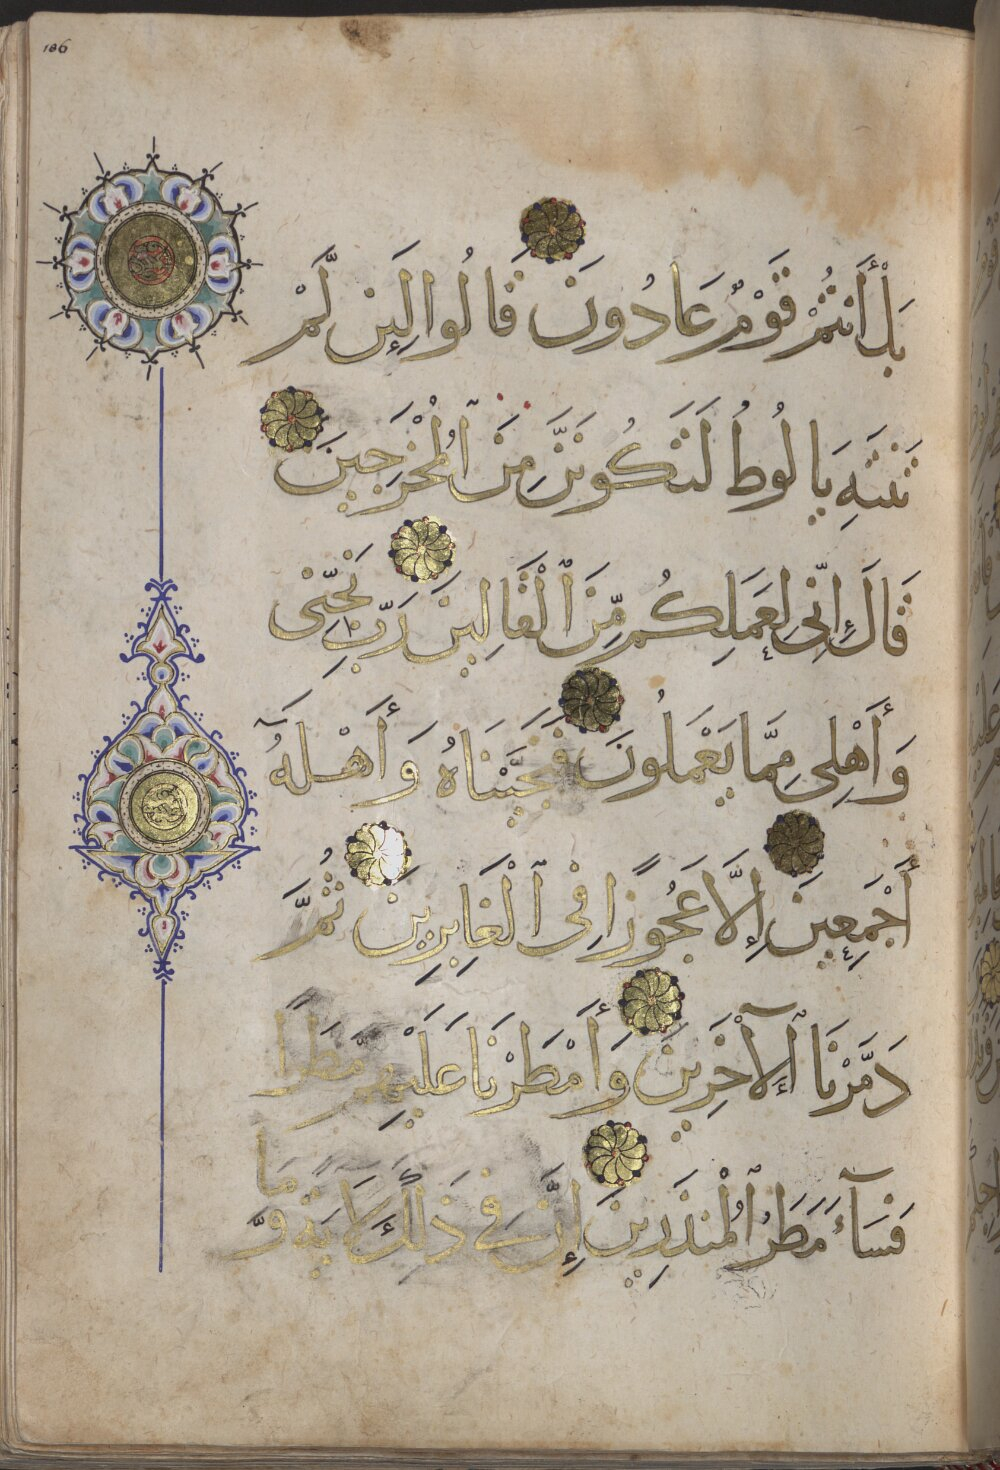 106
بَلْ أَنتُمْ قَوْمٌ عَادُونَ قَالُوا لَئِن لَّمْ
تَنتَهِ يَا لُوطُ لَتَكُونَنَّ مِنَ ٱلْمُخْرَجِينَ
قَالَ إِنِّي لِعَمَلِكُم مِّنَ ٱلْقَالِينَ رَبِّ نَجِّنِي
وَأَهْلِي مِمَّا يَعْمَلُونَ فَنَجَّيْنَاهُ وَأَهْلَهُ
أَجْمَعِينَ إِلَّا عَجُوزًا فِي ٱلْغَابِرِينَ ثُمَّ
دَمَّرْنَا ٱلْآخَرِينَ وَأَمْطَرْنَا عَلَيْهِم مَّطَرًا
فَسَآءَ مَطَرُ ٱلْمُنذَرِينَ إِنَّ فِي ذَٰلِكَ لَآيَةً وَمَا